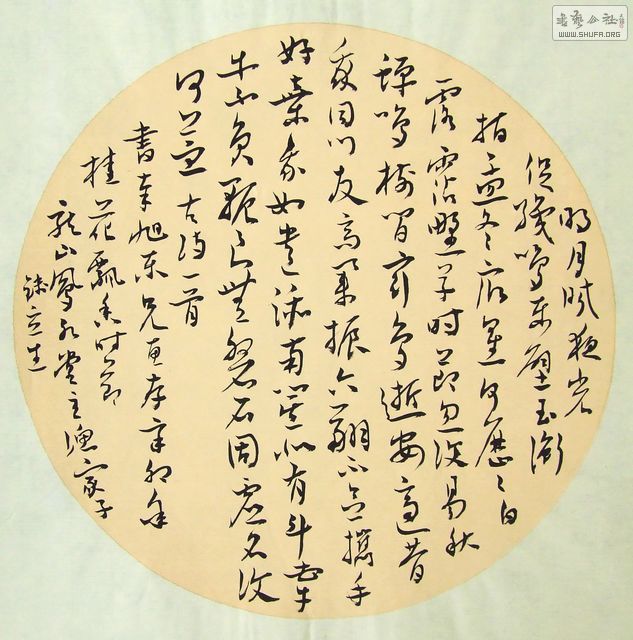 明月皎夜光
促織鳴東壁玉衡
指孟冬眾星何歷々白
露沾野草時節忽復易秋
蟬鳴樹間玄鳥逝安適昔
我同門友高舉振六翮不念攜手
好棄我如遺跡南箕北有斗牽
牛不負軛良無磐石固虛名復
何益 古詩一首
書奉旭東兄惠存辛卯年
桂花飄香時節
龍山鳳水堂主漁家子
立生
書藝公社
WWW.SHUFA.ORG